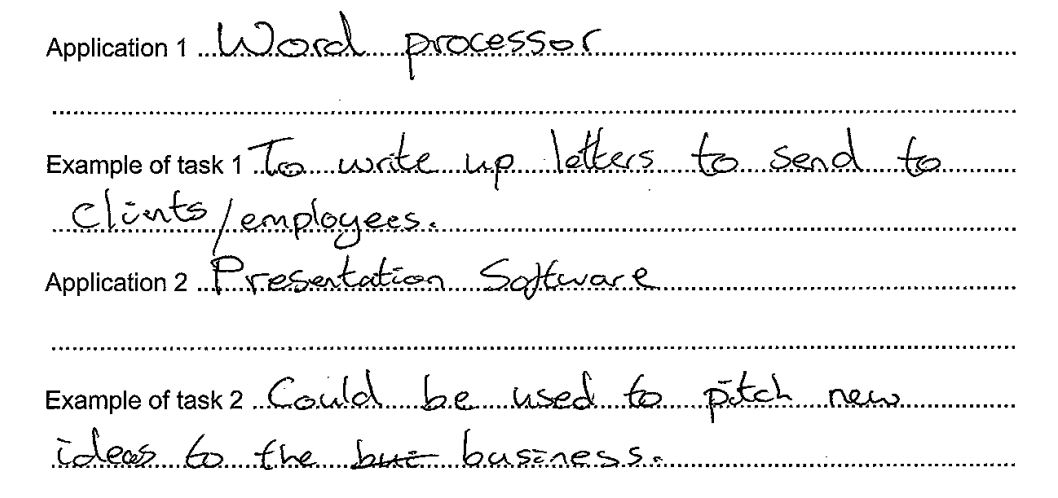 Application 1 Word processor
Example of task 1 To write up letters to send to
clients/employees.
Application 2 Presentation Software
Example of task 2 Could be used to pitch new
ideas to the bui business.